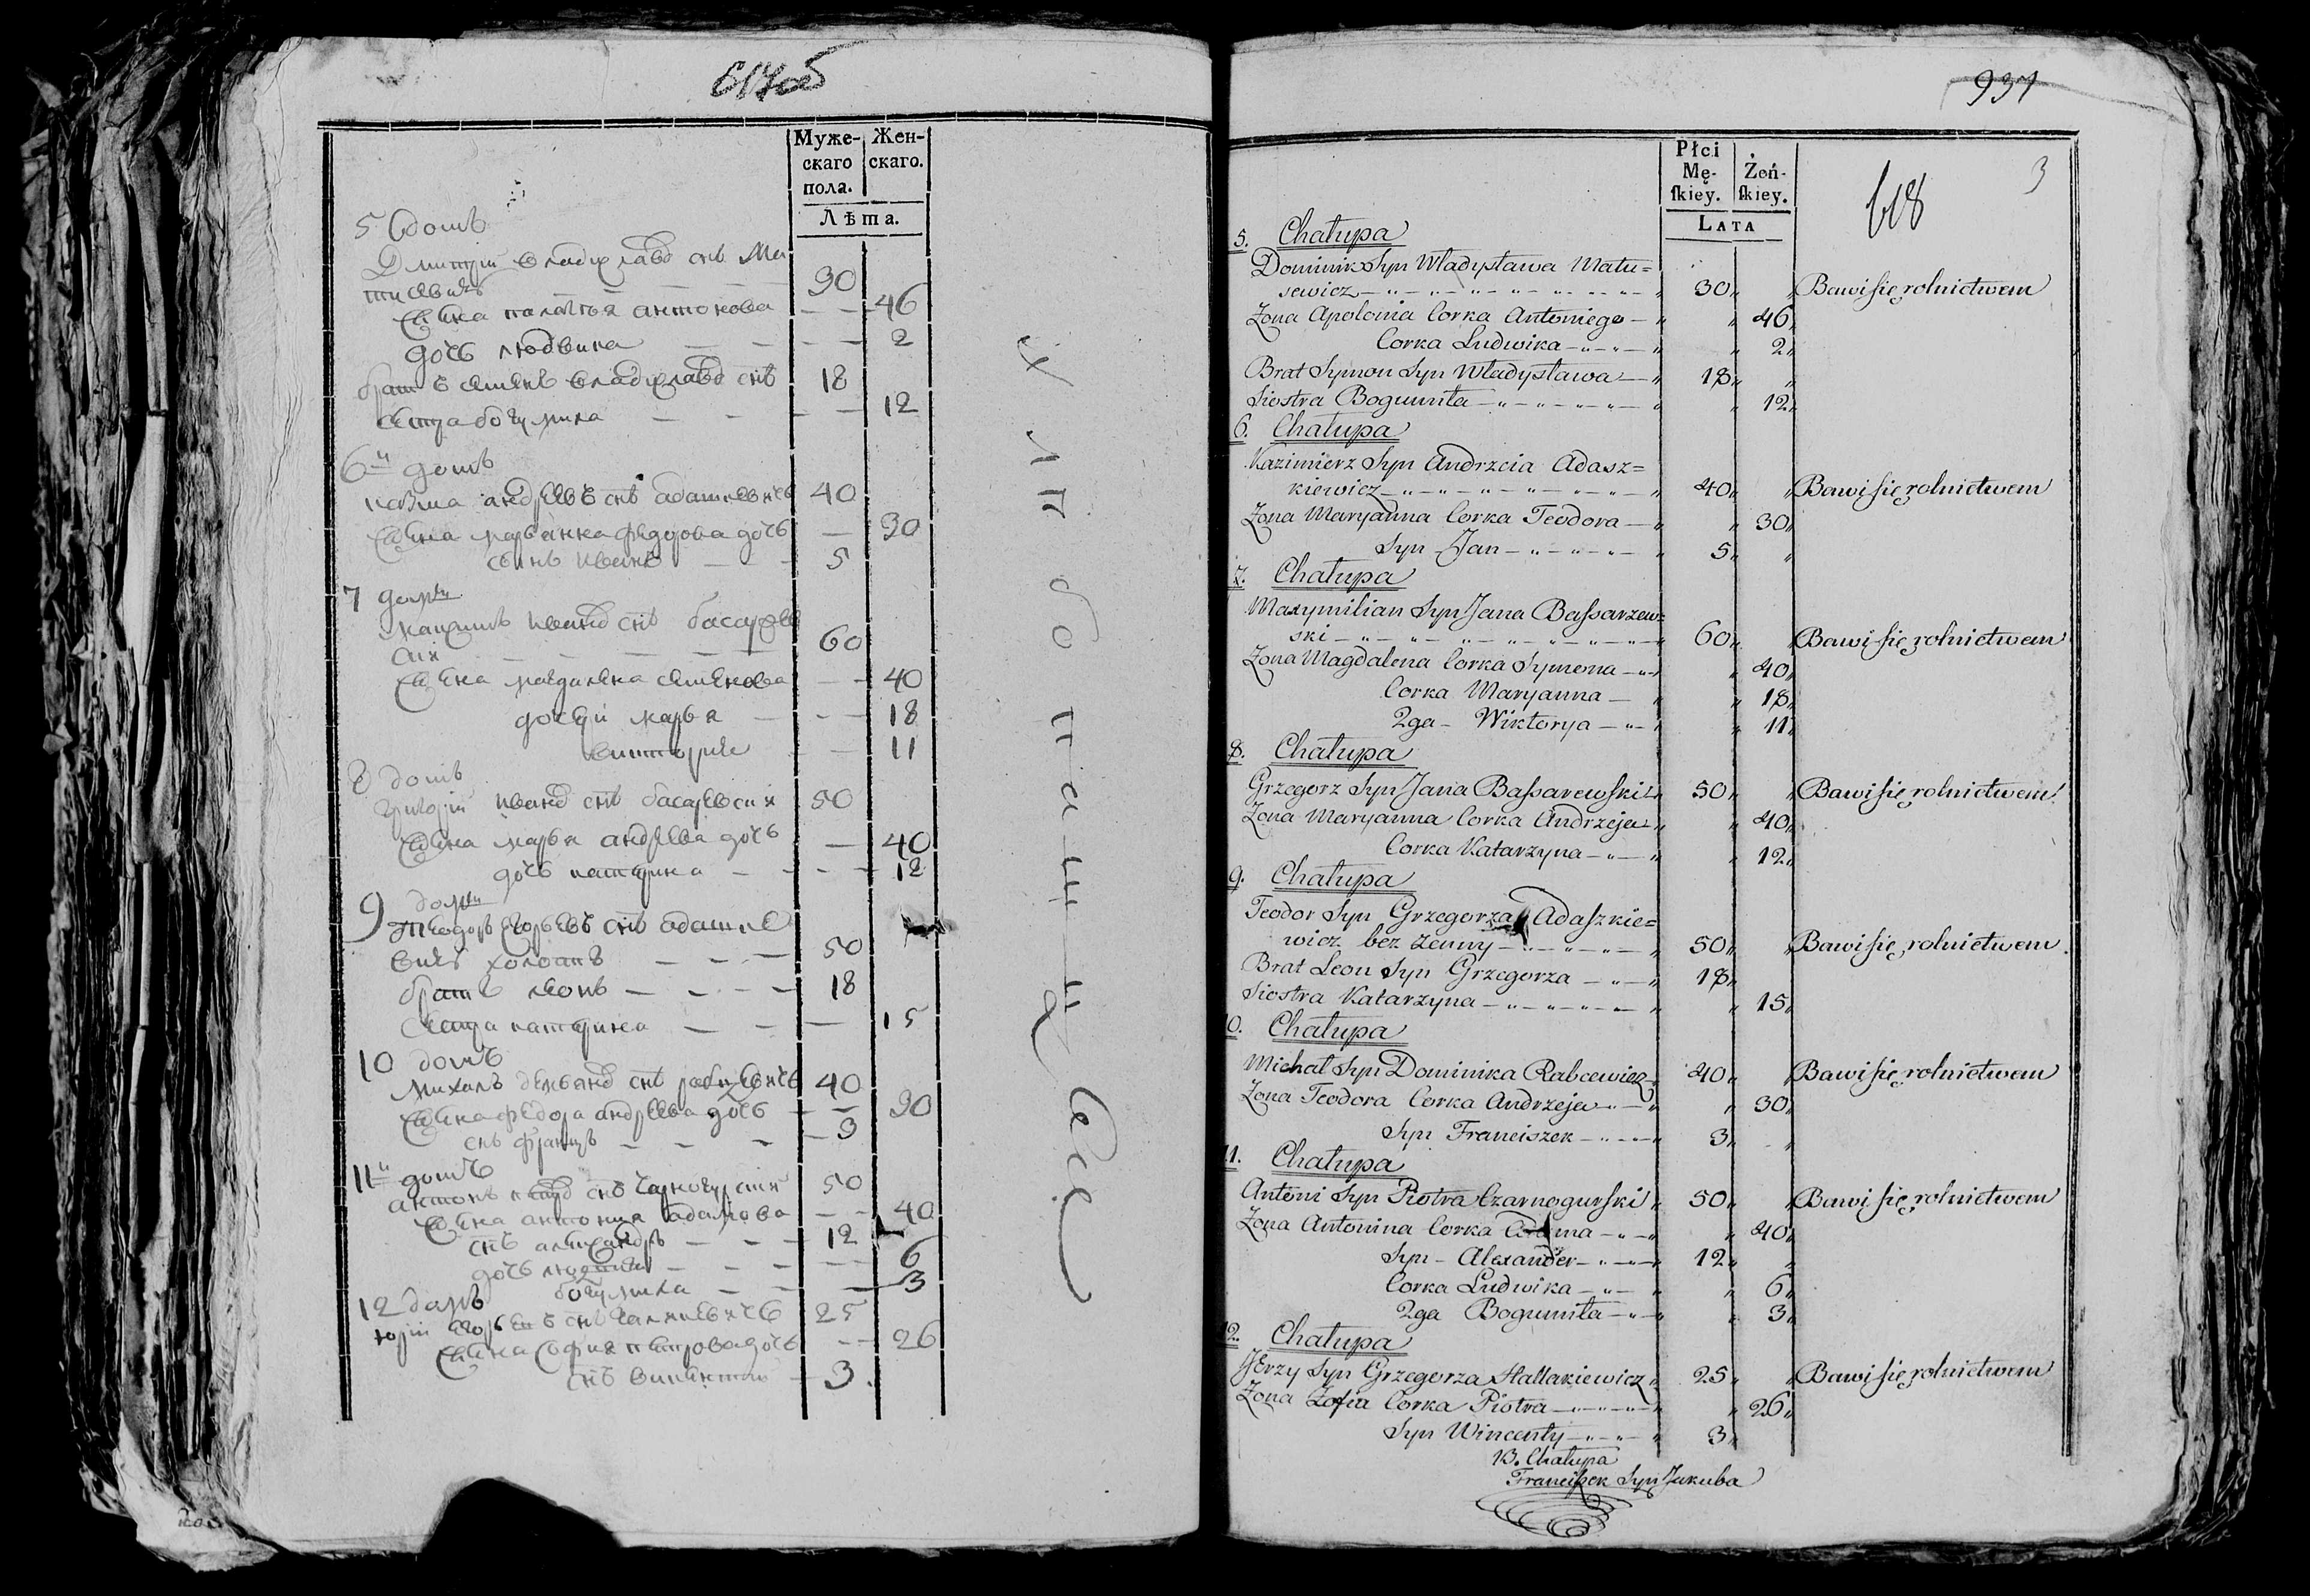 617об
Муже-
скаго
пола.
Жен-
скаго.
Лѣта.
5 домъ
Дмитрій владиславъ снъ Ма
тисевичь 30
жена палагея антонова — — 46
дочь людвика — — 2
братъ семенъ владиславъ снъ 18
сестра богумила — — 12
6й домъ
казма андреевъ снъ адашкевичь 40
жена марьянна федорова дочь — 30
сынъ иванъ — — 5
7 домъ
иванъ снъ басаревс
кій 60
жена магдалена семенова — — 40
дочери марья — — 18
виктория — 11
8 домъ
григорій иванъ снъ басаревскій 50
жена марья андреева дочь — 40
дочь катерина — — 12
9 домъ
теодоръ егорьевъ снъ адашке
вичь холостъ — — 50
братъ леонъ — — 18
сестра катерина — — 15
10 домъ
михалъ снъ рабцевичь 40
жена федора андреева дочь — — 30
снъ францъ — — 3
11й домъ
антонъ петръ снъ чарногурскій 50
жена антонина адамова — — 40
снъ александръ — — 12
дочь людвика — — 6
богумила — — 3
12 домъ
юрій егорьевъ снъ 25
жена софия петрова дочь — — 26
снъ викентій — 3
937
Płci
Mę-
ſkiey.
Żeń-
ſkiey.
LATA
618
3
5. Chałupa
Dominik Syn Władysława Matu=
sewicz 30 Bawi się rolnictwem
Zona Apolonia Corka Antoniego 46
Corka Ludwika 2
Brat Symon Syn Władysława 18
Siostra Bogumiła 12
6. Chałupa
Kazimierz Syn Andrzeia Adasz=
kiewicz 40 Bawi się rolnictwem
Zona Maryanna Corka Teodora 30
Syn Jan 5
7. Chałupa
Maxymilian Syn Jana Baſsarzew=
ski 60 Bawi się rolnictwem
Zona Magdalena Corka Symona 40
Corka Maryanna 18
2ga Wiktorya 11
8. Chałupa
Grzegorz Syn Jana Baſsarewski 50 Bawi się rolnictwem
Zona Maryanna Corka Andrzeja 40
Corka Katarzyna 12
9. Chałupa
Teodor Syn Grzegorza Adaſzkie=
wicz bez zenny 50 Bawi się rolnictwem
Brat Leon Syn Grzegorza 18
Siostra Katarzyna 15
10. Chałupa
Michał Syn Dominika Rabcewicz 40 Bawi się rolnictwem
Zona Teodora Corka Andrzeja 30
Syn Franciszek 3
11. Chałupa
Antoni Syn Piotra Czarnogurski 50 Bawi się rolnictwem
Zona Antonina Corka Adama 40
Syn Alexander 12
Corka Ludwika 6
2ga Bogumiła 3
12. Chałupa
JErzy Syn Grzegorza Hallakiewicz 25 Bawi się rolnictwem
Zona Zofia Corka Piotra 26
Syn Wincenty 3
13. Chałupa
Franciſzek Syn Jakuba